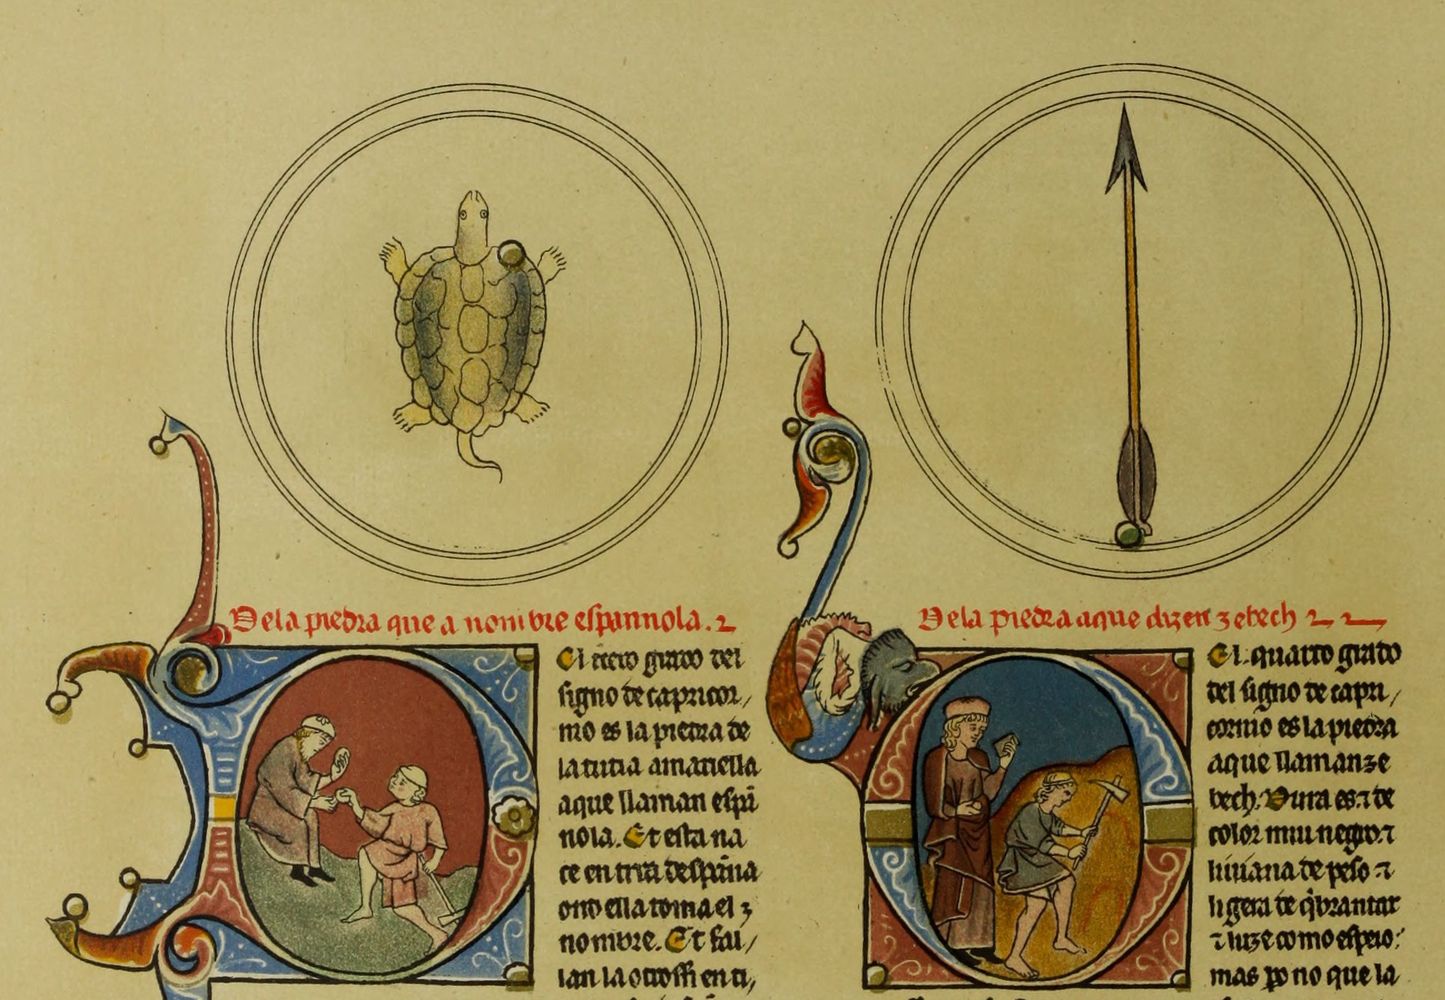 De la piedra que a nombre espannola.
El tercero grado del
signo de capricor/
nio es la piedra de
la tutia amariella
a que llaman espan
nola. Et esta na
ce en tierra despanna
onde ella toma el
nombre. Et fal/
lan la otrossi en
De la piedra a que dizen zebech
El quarto grado
del signo de capri/
cornio es la piedra
a que llaman ze
bech. Dura es ⁊ de
color muy negro ⁊
liuiana de peso ⁊
ligera de q̃brantar
⁊ luze como espeio:
mas pero no que la